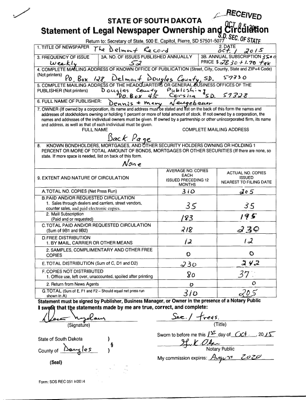 RECEIVED
STATE OF SOUTH DAKOTA
Statement of Legal Newspaper Ownership and Circulation
Return to: Secretary of State, 500 E. Capitol, Pierre, SD 57501
S.D. SEC. OF STATE
1. TITLE OF NEWSPAPER The Delmont Record
2. DATE Oct 1 2015
3. FREQUENCY OF ISSUE Weekly
3A. NO. OF ISSUES PUBLISHED ANNUALLY 52
3B. ANNUAL SUBSCRIPTION PRICE
4. COMPLETE MAILING ADDRESS OF KNOWN OFFICE OF PUBLICATION (Street, City, County, State and ZIP+4 Code) (Not printers)
P.O. Box 128 Delmont Douglas County, SD. 57330
5. COMPLETE MAILING ADDRESS OF THE HEADQUARTERS OR GENERAL BUSINESS OFFICES OF THE PUBLISHER
Douglas County Publishing
Corsica SD. 57328
6. FULL NAME OF PUBLISHER:
7. OWNER (If owned by a corporation, its name and address must be stated and also on the back of this form the names and addresses of stockholders owning or holding 1 percent or more of total amount of stock. If not owned by a corporation, the names and addresses of the individual owners must be given. If owned by a partnership or other unincorporated firm, its name and address, as well as that of each individual must be given.
FULL NAME COMPLETE MAILING ADDRESS
Back Page
8. KNOWN BONDHOLDERS, MORTGAGEES, AND OTHER SECURITY HOLDERS OWNING OR HOLDING 1 PERCENT OR MORE OF TOTAL AMOUNT OF BONDS, MORTGAGES OR OTHER SECURITIES (If there are none, so state. If more space is needed, list on back of this form.
None
9. EXTENT AND NATURE OF CIRCULATION
AVERAGE NO. COPIES EACH ISSUED PRECEDING 12 MONTHS
ACTUAL NO. COPIES ISSUED NEAREST TO FILING DATE
A. TOTAL NO. COPIES (Net Press Run) 310
B. PAID AND/OR REQUESTED CIRCULATION
1. Sales through dealers and carriers, street vendors, counter sales, and paid electronic copies 35 35
2. Mail Subscription (Paid and or requested) 183 195
C. TOTAL PAID AND/OR REQUESTED CIRCULATION (Sum of 9B1 and 9B2) 218 230
D. FREE DISTRIBUTION
1. BY MAIL, CARRIER OR OTHER MEANS 12 12
2. SAMPLES, COMPLIMENTARY AND OTHER FREE COPIES 0 0
E. TOTAL DISTRIBUTION (Sum of C, D1 and D2) 230 242
F. COPIES NOT DISTRIBUTED
1. Office use, left over, unaccounted, spoiled after printing 80 37
2. Return from News Agents 0 0
G. TOTAL (Sum of E, F1 and F2 - Should equal net press run shown in A) 310
Statement must be signed by Publisher, Business Manager, or Owner in the presence of a Notary Public
I swear that the statements made by me are true, correct, and complete:
Sec. / treas.
(Signature) (Title)
State of South Dakota )
County of Douglas )
(Seal)
Sworn to before me this 1st day of Oct 2015
Notary Public
My commission expires: 2020
Form: SOS REC 051 4/00